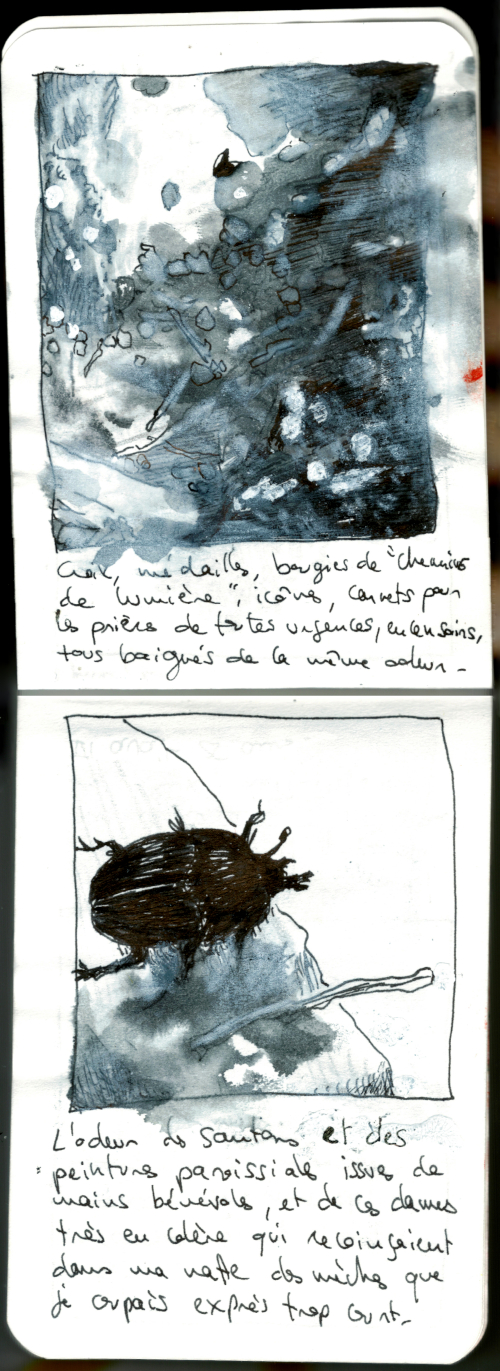 Croix, médailles, bougies de "Chemins
de lumière", icônes, carnets pour
les prières de toutes urgences, encensoirs,
tous baignés de la même odeur –
L'odeur des santons et des
peintures paroissiales issues de
mains bénévoles, et de ces dames
très en colère qui recoinçaient
dans ma natte des mèches que
je coupais exprès trop court –